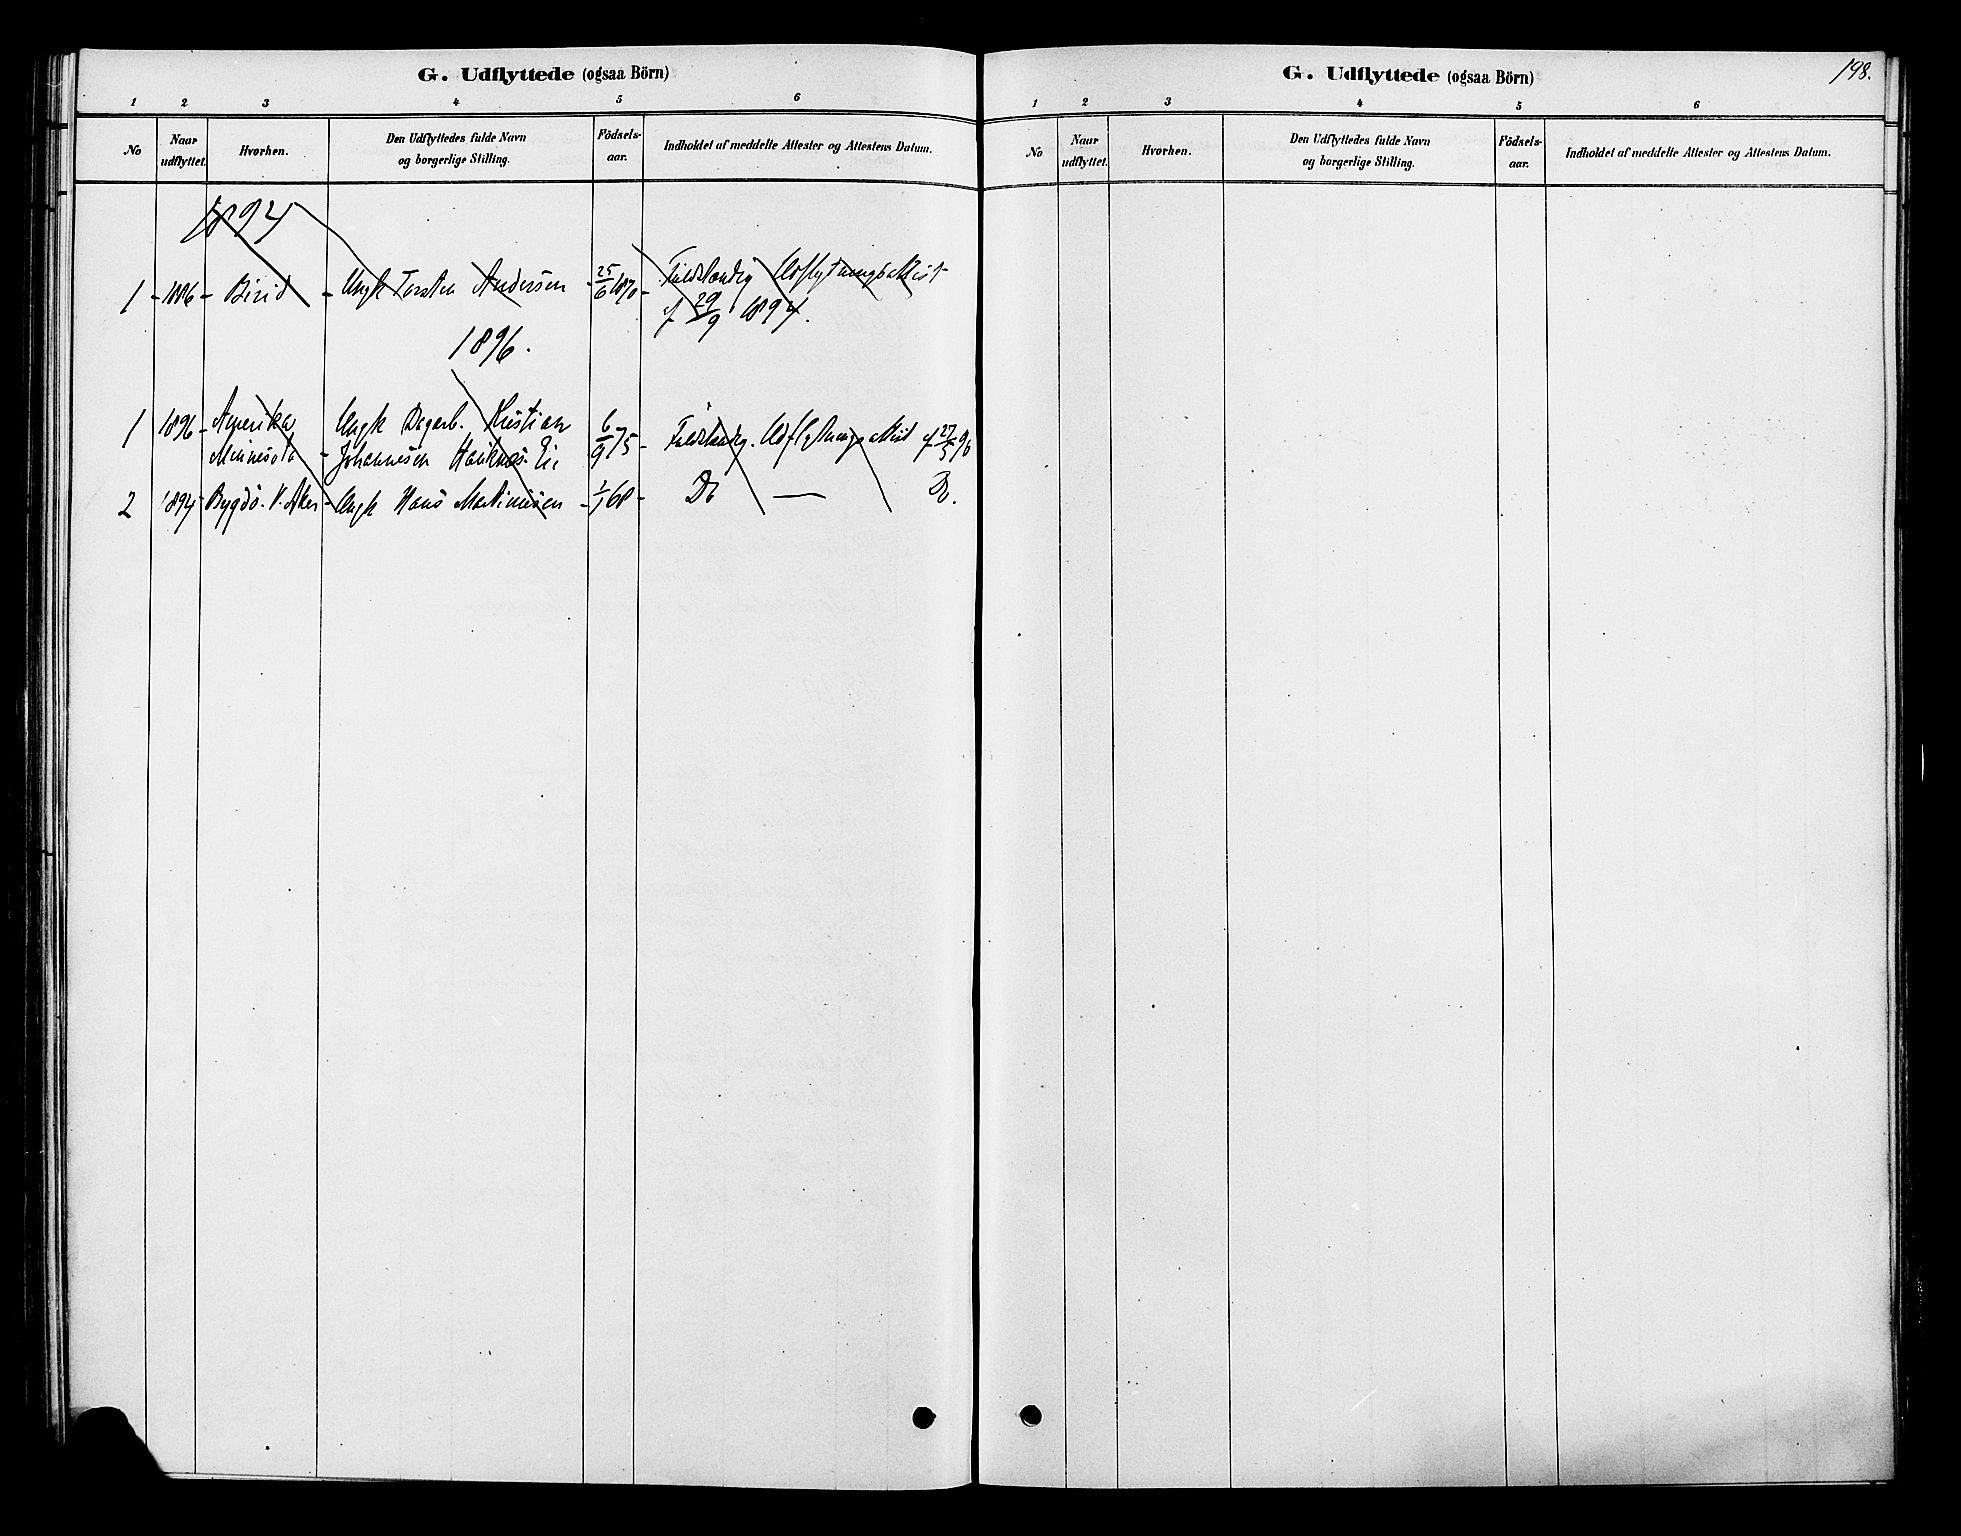 G. Udflyttede (ogsaa Börn)
1 2 3 4 5 6
No Naar udflyttet. Hvorhen. Den Udflyttedes fulde Navn og borgerlige Stilling. Födsels-aar. Indholdet af meddelte Attester og Attestens Datum.
1894
1 - 1886 - Birid - Ungk Torsten Andersen - 25/6 1870 - Fuldstændig Udflytningsattest
af 29/9 1894.
1896.
1 1896 - Amerika Ungk Dagarb. Kristian 6/9 75 - Fuldstændig. Udflytningsattest af 27/3 96
Minnesota - Johannesen
2 1894 Bygdö. V. Aker - Ungk Hans Martinusen - 1/1 68 - Do — Do.
G. Udflyttede (ogsaa Börn) 198.
1 2 3 4 5 6
No Naar udflyttet. Hvorhen. Den Udflyttedes fulde Navn og borgerlige Stilling. Födsels-aar. Indholdet af meddelte Attester og Attestens Datum.